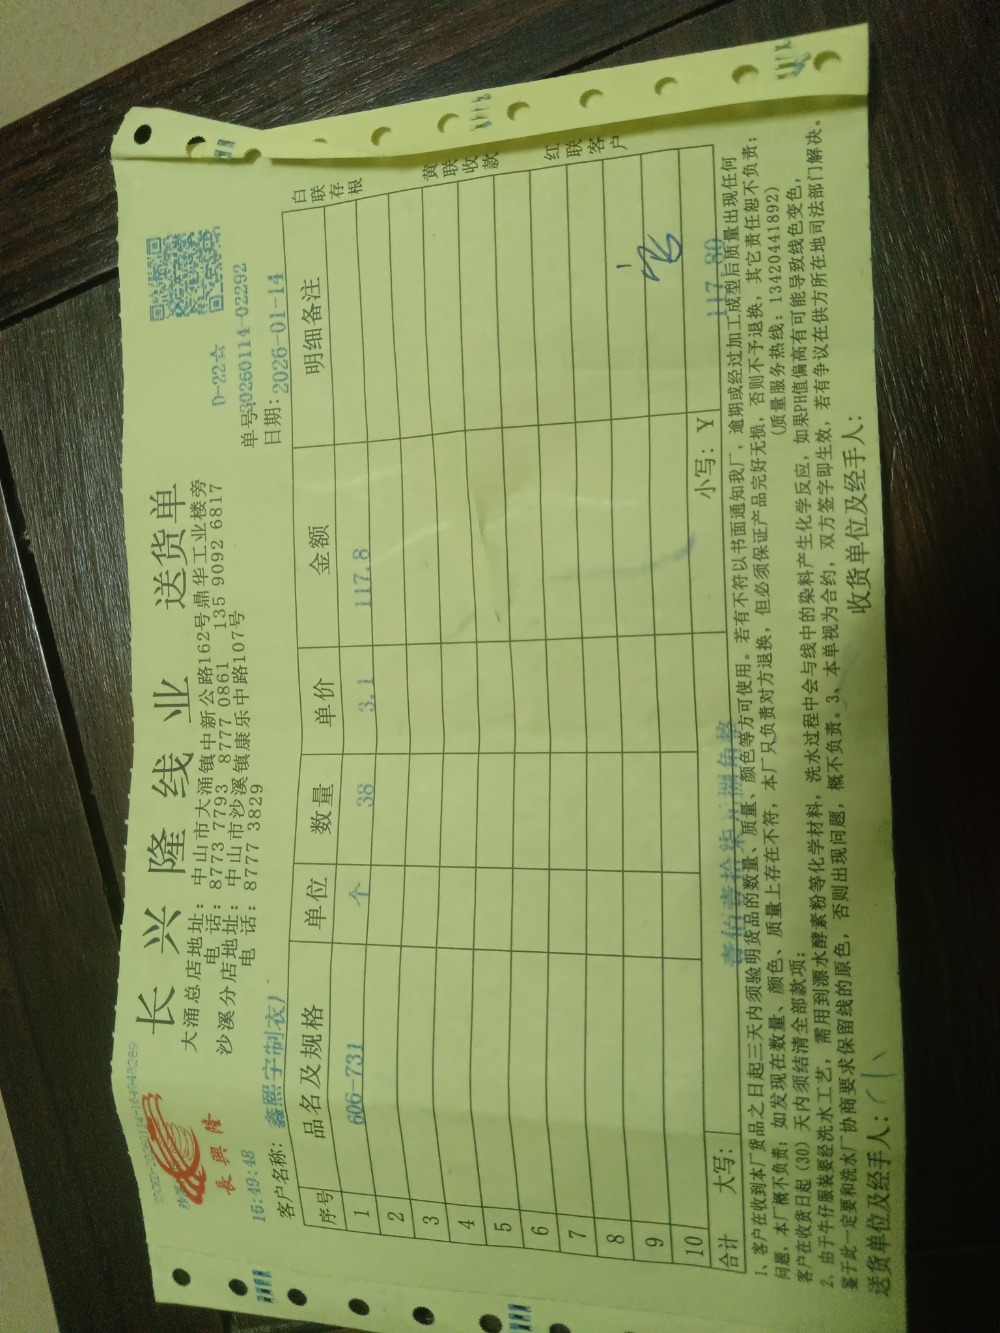 長興隆
长兴隆线业 送货单
大涌总店地址：中山市大涌镇中新公路162号鼎华工业楼旁
电 话：8773 7793 8777 0861 135 9092 6817
沙溪分店地址：中山市沙溪镇康乐中路107号
电 话：8777 3829
D-22☆
16:49:48
单号:20260114-02292
客户名称：鑫熙宇制衣)
日期：2026-01-14
序号 品名及规格 单位 数量 单价 金额 明细备注
1 606-731 个 38 3.1 117.8
2
3
4
5
6
7
8
9
10
合计 大写：壹佰壹拾柒元捌角整 小写：Y 117.80
白联存根
黄联收款
红联客户
1、客户在收到本厂货品之日起三天内须验明货品的数量、质量、颜色等方可使用。若有不符以书面通知我厂，逾期或经过加工成型后质量出现任何
问题，本厂概不负责；如发现在数量、颜色、质量上存在不符，本厂只负责对方退换，但必须保证产品完好无损，否则不予退换，其它责任恕不负责；
客户在收货日起（30）天内须结清全部款项； （质量服务热线：13420441892）
2、由于牛仔服装要经洗水工艺，需用到漂水酵素粉等化学材料，洗水过程中会与线中的染料产生化学反应，如果PH值偏高有可能导致线色变色，
鉴于此一定要和洗水厂协商要求保留线的原色，否则出现问题，概不负责。3、本单视为合约，双方签字即生效，若有争议在供方所在地司法部门解决。
送货单位及经手人： 收货单位及经手人：